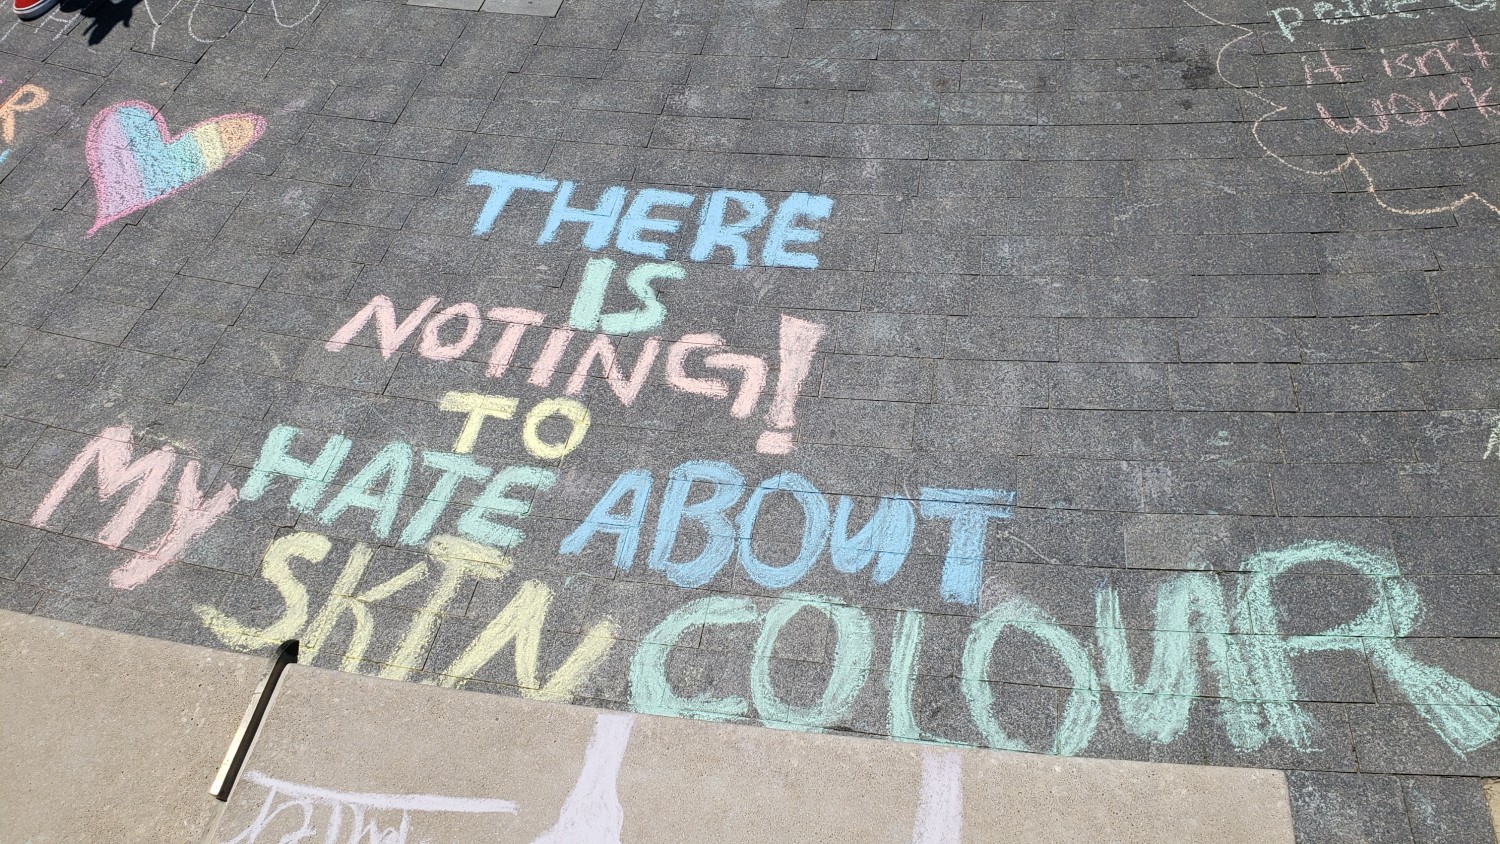 THERE
IS
NOTING!
TO
HATE ABOUT
MY SKIN COLOUR
it isn't
work